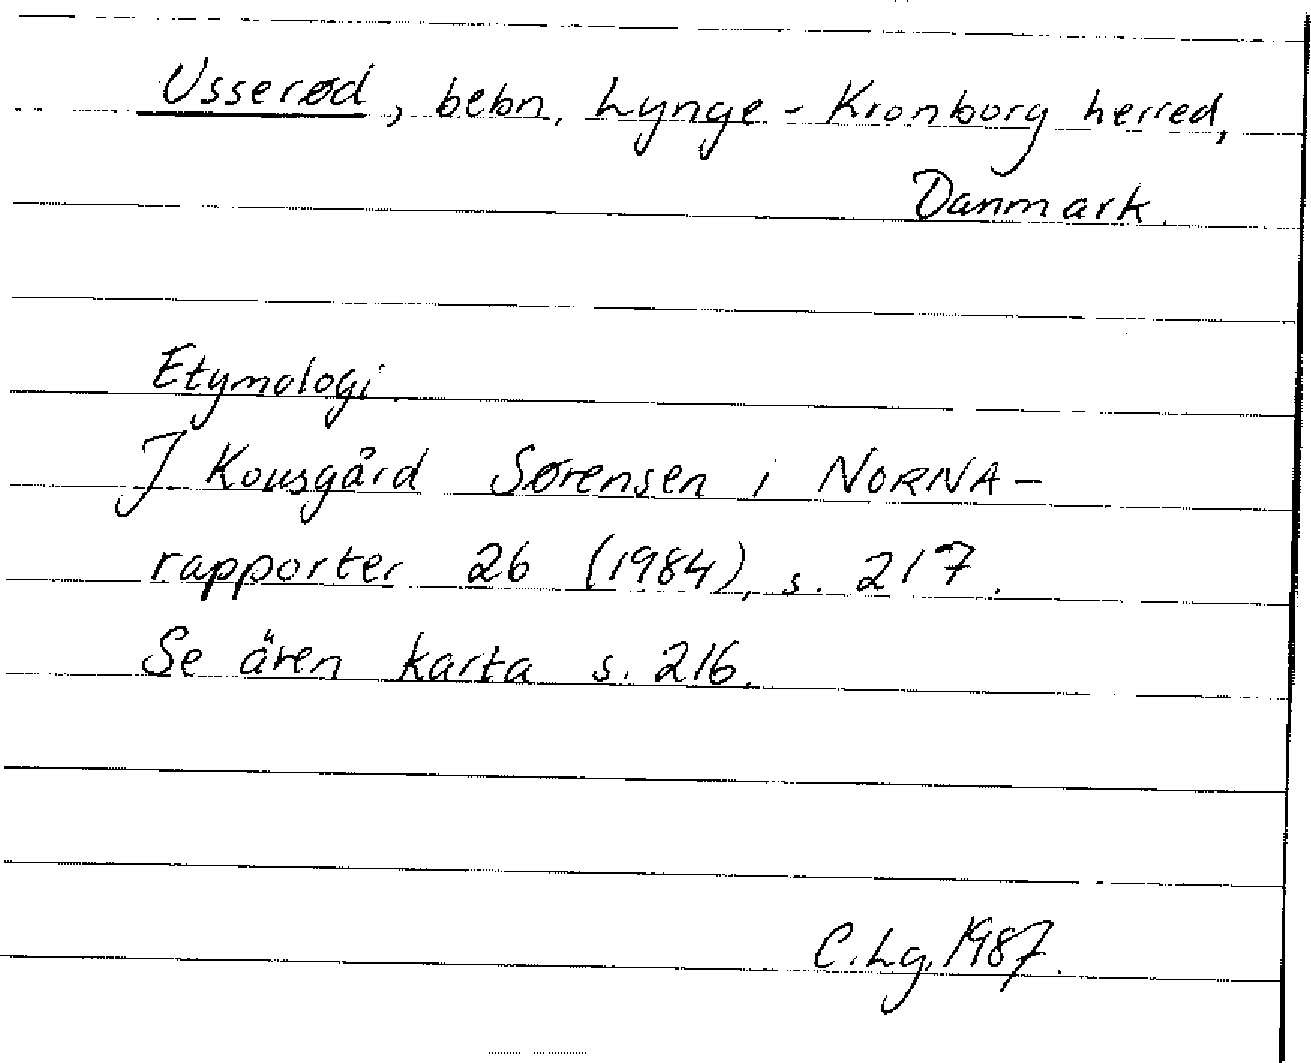 Usserød, bebn, Lynge-Kronborg herred,
Danmark.
Etymologi.
J Kousgård Sørensen i NORNA-
rapporter 26 (1984), s. 217.
Se även karta s. 216.
C. Lg. 1987.